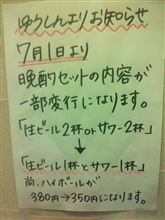 ゆうしんよりお知らせ
7月1日より
晩酌セットの内容が
一部変行になります。
「生ビール2杯orサワー2杯」
↓
「生ビール1杯とサワー1杯」
尚、ハイボールが
380円→350円になります。